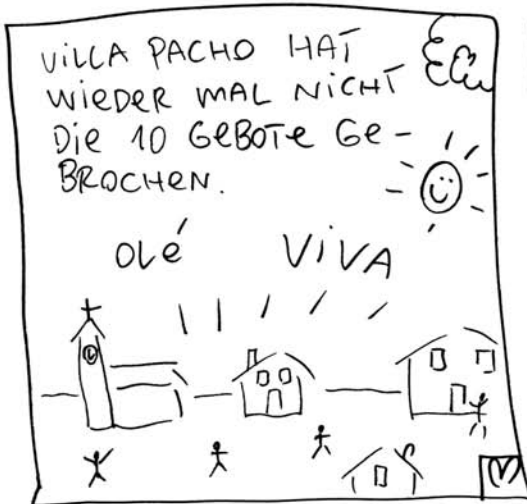 ViLLA PACHO HAT
WiEDER MAL NiCHT
Die 10 GeBOTe Ge-
BROCHeN.
OLé
ViVA